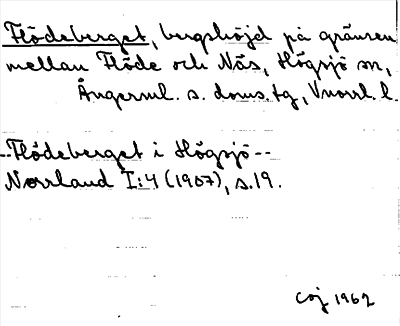 Flödeberget, bergshöjd på gränsen
mellan Flöde och Näs, Högsjö sn,
Ångerml. s. doms.tg, Vnorrl. l.
--Flödeberget i Högsjö--
Norrland I:4 (1907), s.19.
COJ 1962